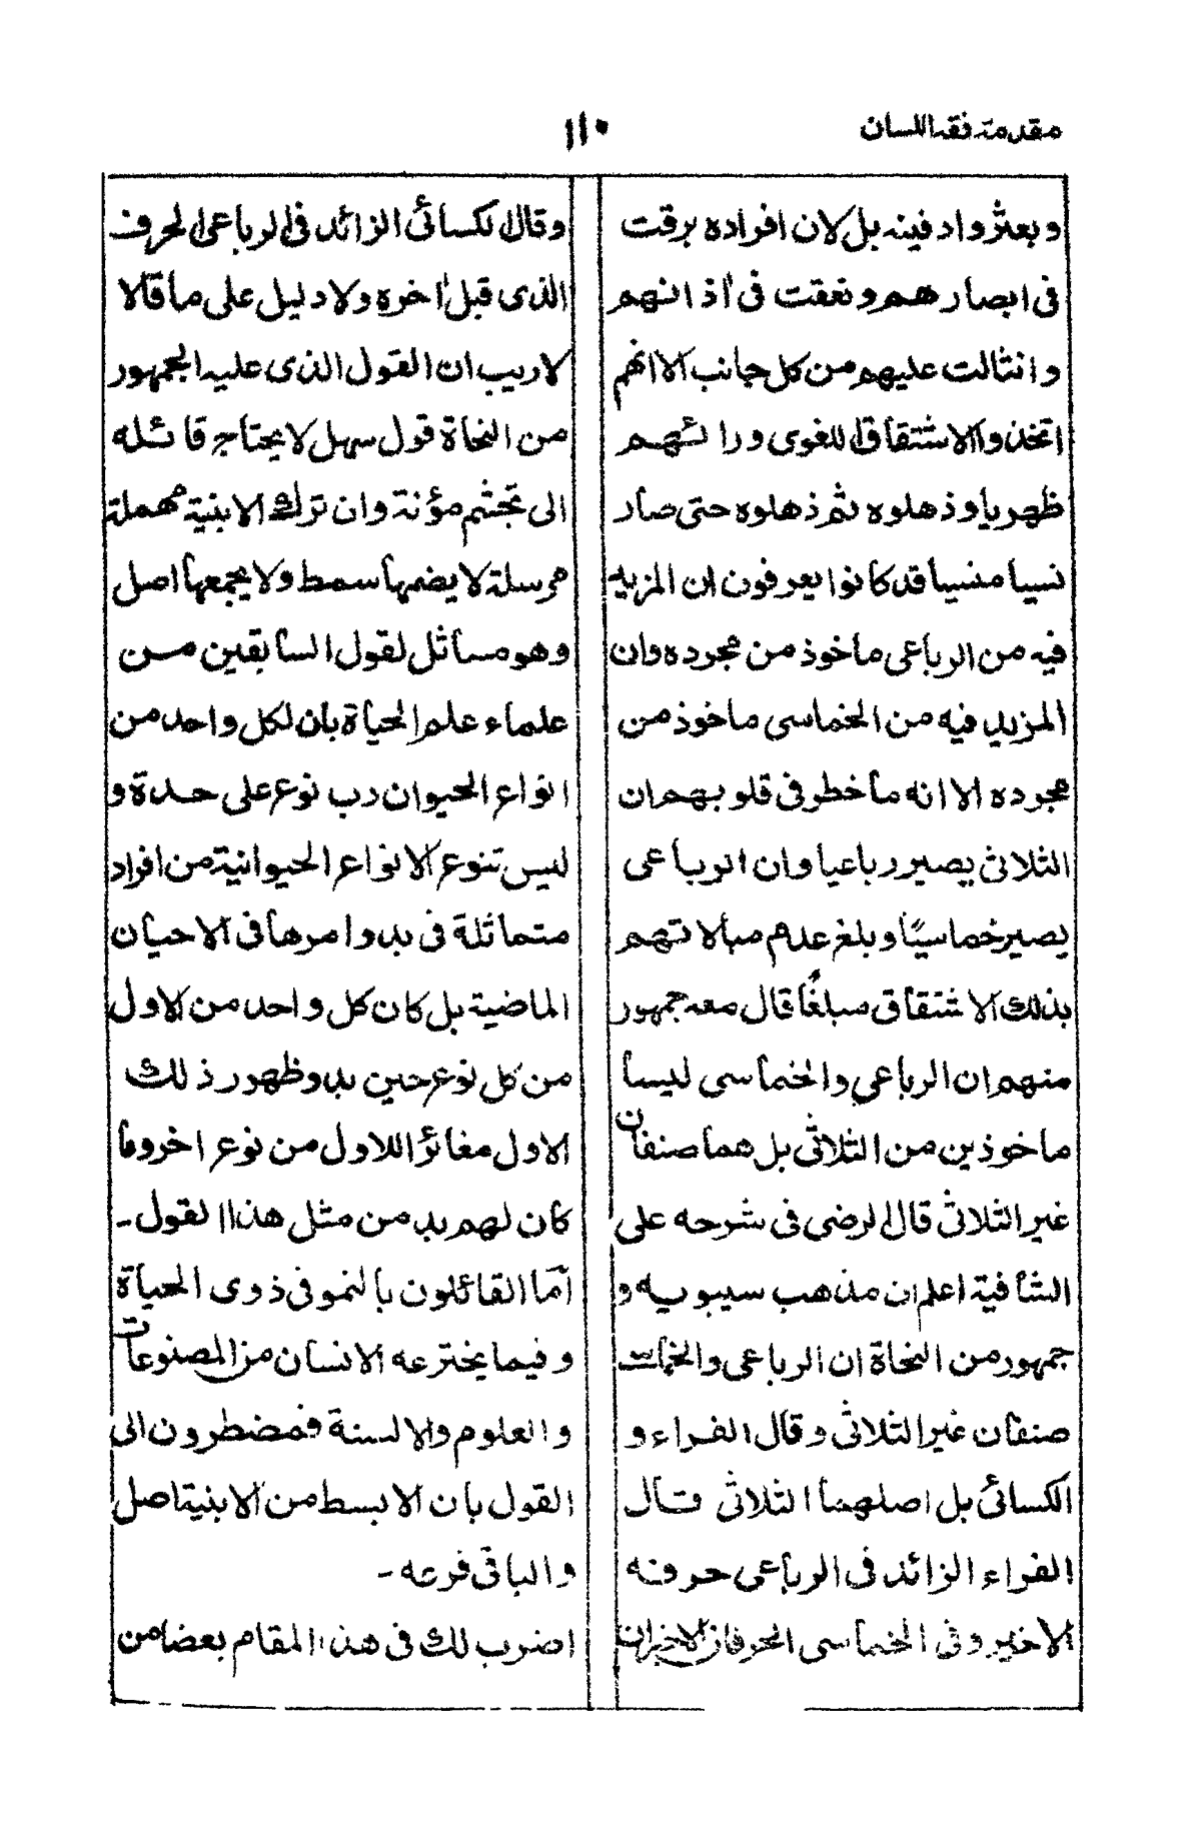 مقدمة فقه اللسان
١١٠
وبعثروا دفينه بل لان افراده برقت
فى ابصارهم ونعقت فى اذانهم
وانثالت عليهم من كل جانب الا انهم
اتخذوا الاشتقاق اللغوى ورائهم
ظهريا وذهلوه ثم ذهلوه حتى صار
نسيا منسيا قد كانوا يعرفون ان المزيد
فيه من الرباعى ماخوذ من مجرده وان
المزيد فيه من الخماسى ماخوذ من
مجرده الا انه ما خطر فى قلوبهم ان
الثلاثى يصير رباعيا وان الرباعى
يصير خماسيًا وبلغ عدم مبالاتهم
بذلك الاشتقاق مبلغًا قال معه جمهور
منهم ان الرباعى والخماسى ليسا
ماخوذين من الثلاثى بل هما صنفان
غير الثلاثى قال الرضى فى شرحه على
الشافية اعلم ان مذهب سيبويه و
جمهور من النحاة ان الرباعى والخماسى
صنفان غير الثلاثى وقال الفراء و
الكسائى بل اصلهما الثلاثى قال
الفراء الزائد فى الرباعى حرفه
الاخير وفى الخماسى الحرفان الاخيران
وقال الكسائى الزائد فى الرباعى الحرف
الذى قبل اخره ولا دليل على ما قالا
لا ريب ان القول الذى عليه الجمهور
من النحاة قول سهل لا يحتاج قائله
الى تجشم مؤنة وان ترك الابنية مهملة
مرسلة لا يضمها سمط ولا يجمعها اصل
وهو مماثل لقول السابقين من
علماء علم الحياة بان لكل واحد من
انواع الحيوان رب نوع على حدة و
ليس تنوع الانواع الحيوانية من افراد
متماثلة فى بدو امرها فى الاحيان
الماضية بل كان كل واحد من الاول
من كل نوع حين بدو ظهور ذلك
الاول مغائرا للاول من نوع اخر وما
كان لهم بد من مثل هذا القول ـ
أما القائلون بالنمو فى ذوى الحياة
وفيما يخترعه الانسان من المصنوعات
والعلوم والالسنة فمضطرون الى
القول بان الابسط من الابنية اصل
والباقى فرعه ـ
اضرب لك فى هذا المقام بعضا من